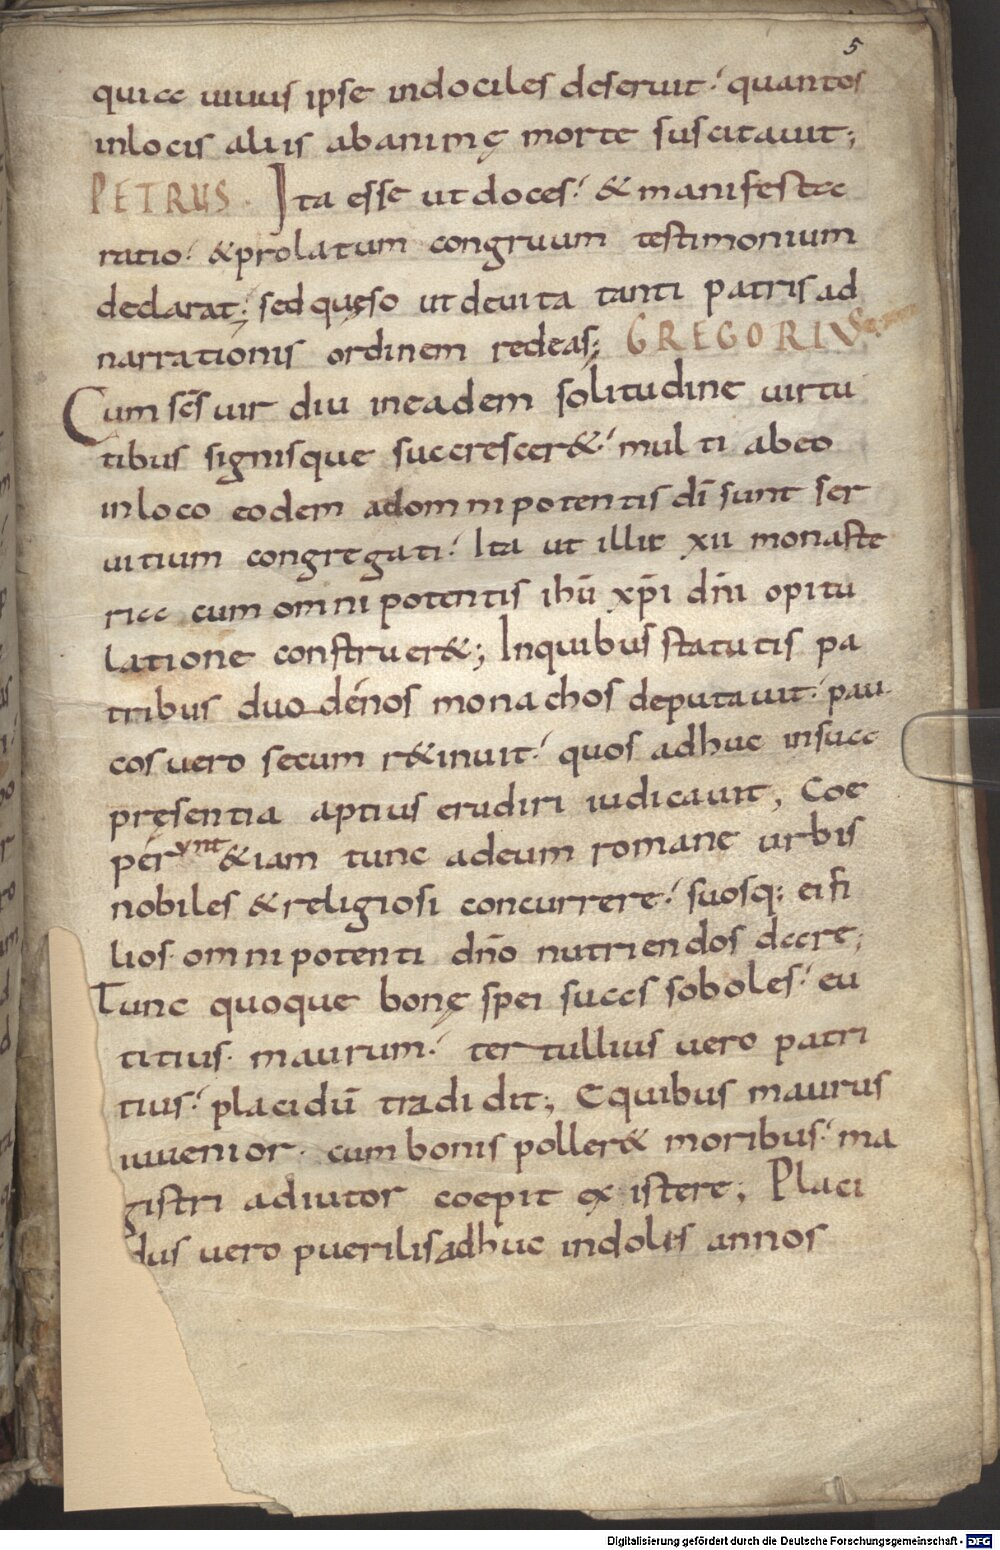 5
quia uiuus ipse indociles deseruit: quantos
inlocis aliis abanimę morte suscitauit;
PETRUS. Ita esse ut doces: & manifesta
ratio: & prolatum congruum testimonium
declarat; sed quęso ut deuita tanti patris ad
narrationis ordinem redeas; GREGORIUS
Cum scs̄ uir diu ineadem solitudine uirtu
tibus signisque succrescer&: multi abeo
inloco eodem adomnipotentis dī sunt ser
uitium congregati: Ita ut illic xii monaste
ria cum omnipotentis ihū xp̄i dn̄i opitu
latione construer&; Inquibus statutis pa
tribus duodenos monachos deputauit: pau
cos uero secum r&inuit: quos adhuc insua
pręsentia aptius erudiri iudicauit, Coe
perunt &iam tunc adeum romane urbis
nobiles & religiosi concurrere: suosq; ei fi
lios omnipotenti dn̄o nutriendos dare;
Tunc quoque bonę spei suas soboles: eu
titius. maurum: tertullius uero patri
tius: placidū tradidit; Equibus maurus
iuuenior. cum bonis poller& moribus: ma
gistri adiutor coepit existere; Placi
dus uero puerilis adhuc indolis annos
Digitalisierung gefördert durch die Deutsche Forschungsgemeinschaft - DFG